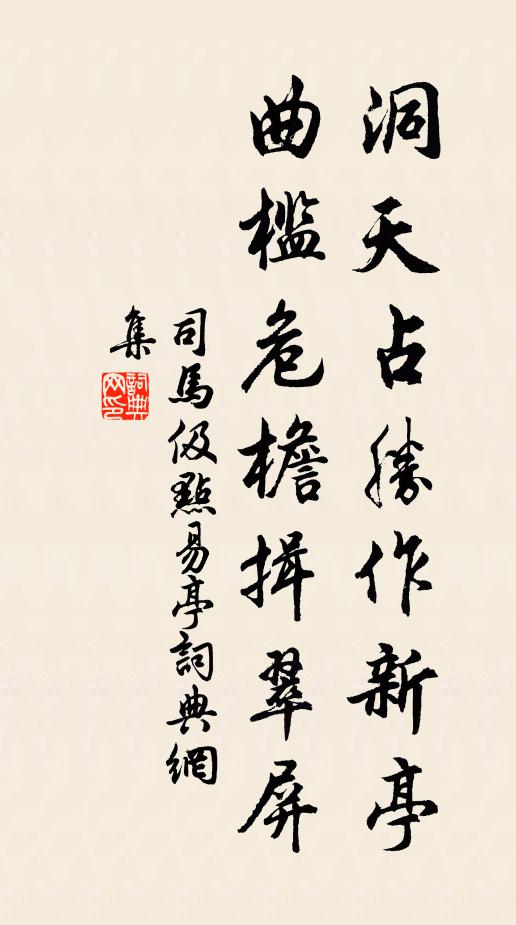 洞天占勝作新亭
曲檻危檐揖翠屏
司馬伋點易亭詞典網
集
詞典
网印